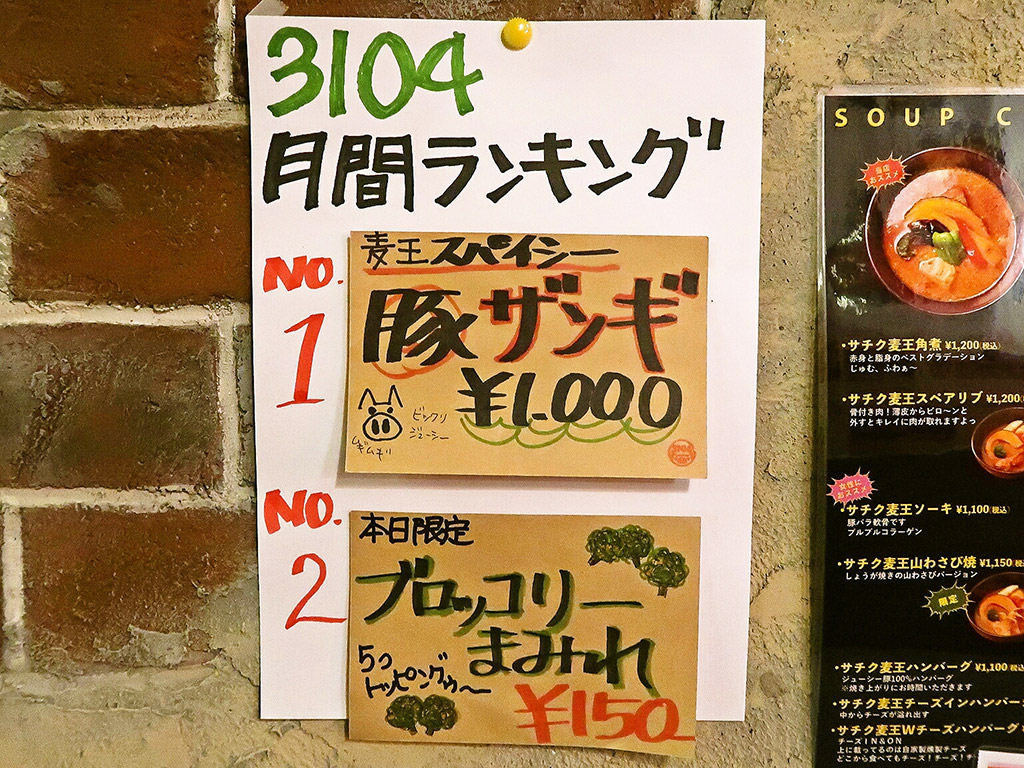 3104
月間ランキング
NO.
1
麦王スパイシー
豚ザンギ
¥1.000
ビックリ
ジューシー
ムギムギ
NO.
2
本日限定
ブロッコリー
まみれ
5つ
トッピングゥ〜
¥150
SOUP C
当店
おススメ
・サチク麦王角煮 ¥1,200(税込)
赤身と脂身のベストグラデーション
じゅむ、ふわぁ〜
・サチク麦王スペアリブ ¥1,200
骨付き肉！薄皮からピロ〜ンと
外すとキレイに肉が取れますよっ
女性に
おススメ
・サチク麦王ソーキ ¥1,100(税込)
豚バラ軟骨です
プルプルコラーゲン
・サチク麦王山わさび焼 ¥1,150(税込
しょうが焼きの山わさびバージョン
限定
・サチク麦王ハンバーグ ¥1,100(税込
ジューシー豚100%ハンバーグ
※焼き上がりにお時間いただきます
・サチク麦王チーズインハンバー
中からチーズが溢れ出す
・サチク麦王Wチーズハンバーグ
チーズIN&ON
上に載ってるのは自家製燻製チーズ
どこから食べてもチーズ！チーズ！チ